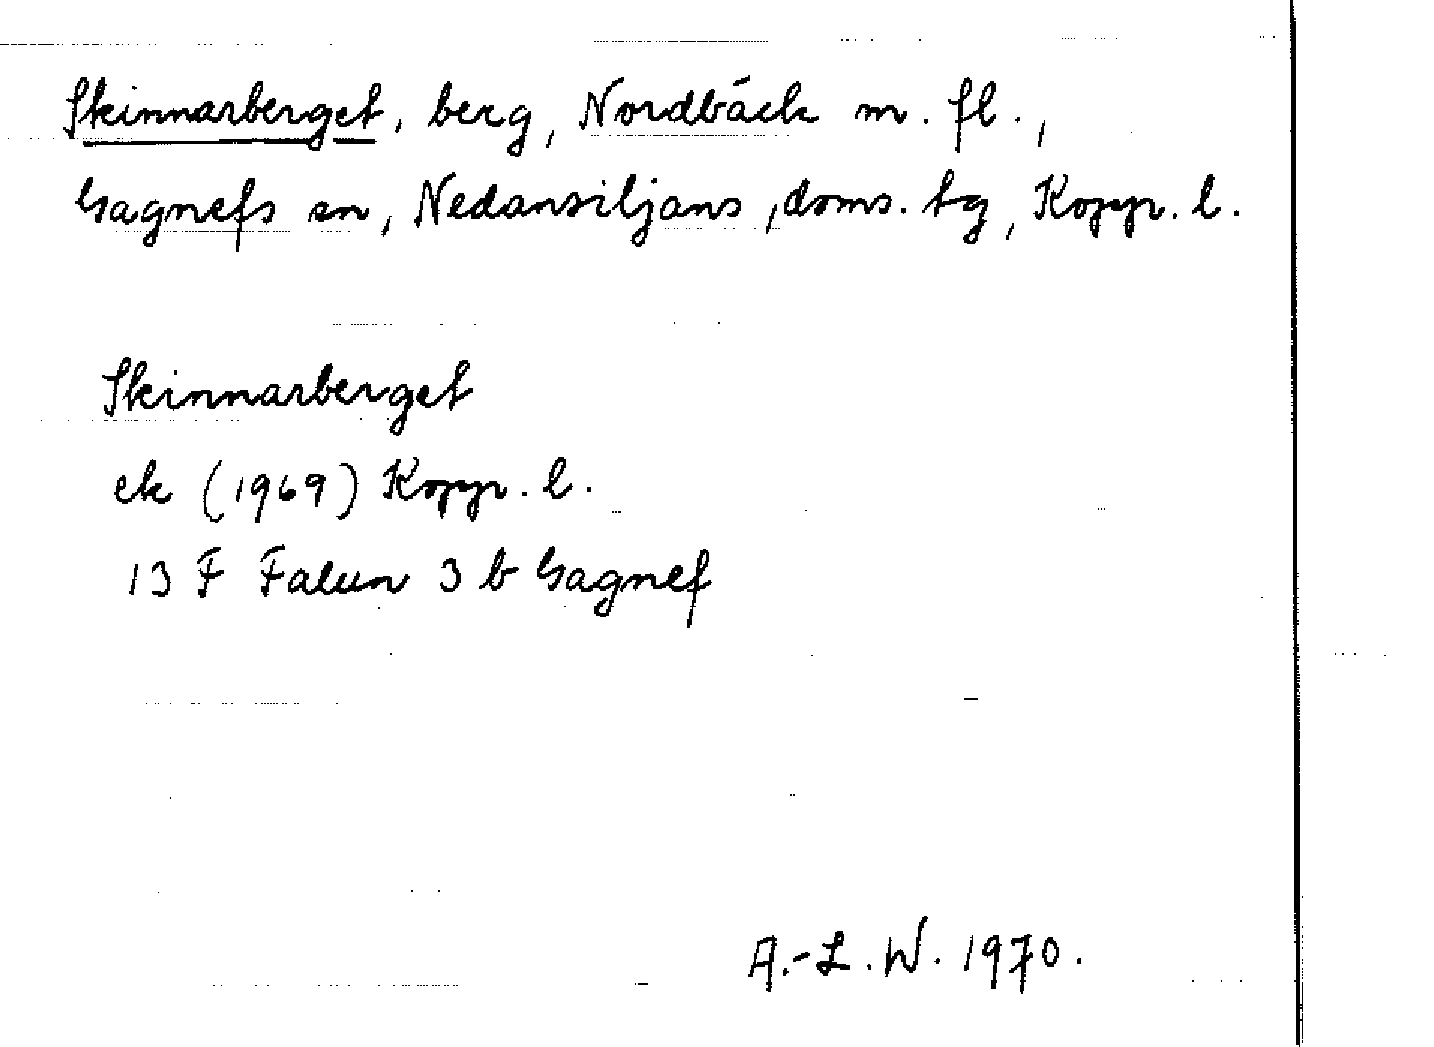 Skinnarberget, berg, Nordbäck m. fl.,
Gagnefs sn, Nedansiljans, doms. tg, Kopp. l.
Skinnarberget
ek (1969) Kopp. l.
13 F Falun 3 b Gagnef
A.-L. W. 1970.